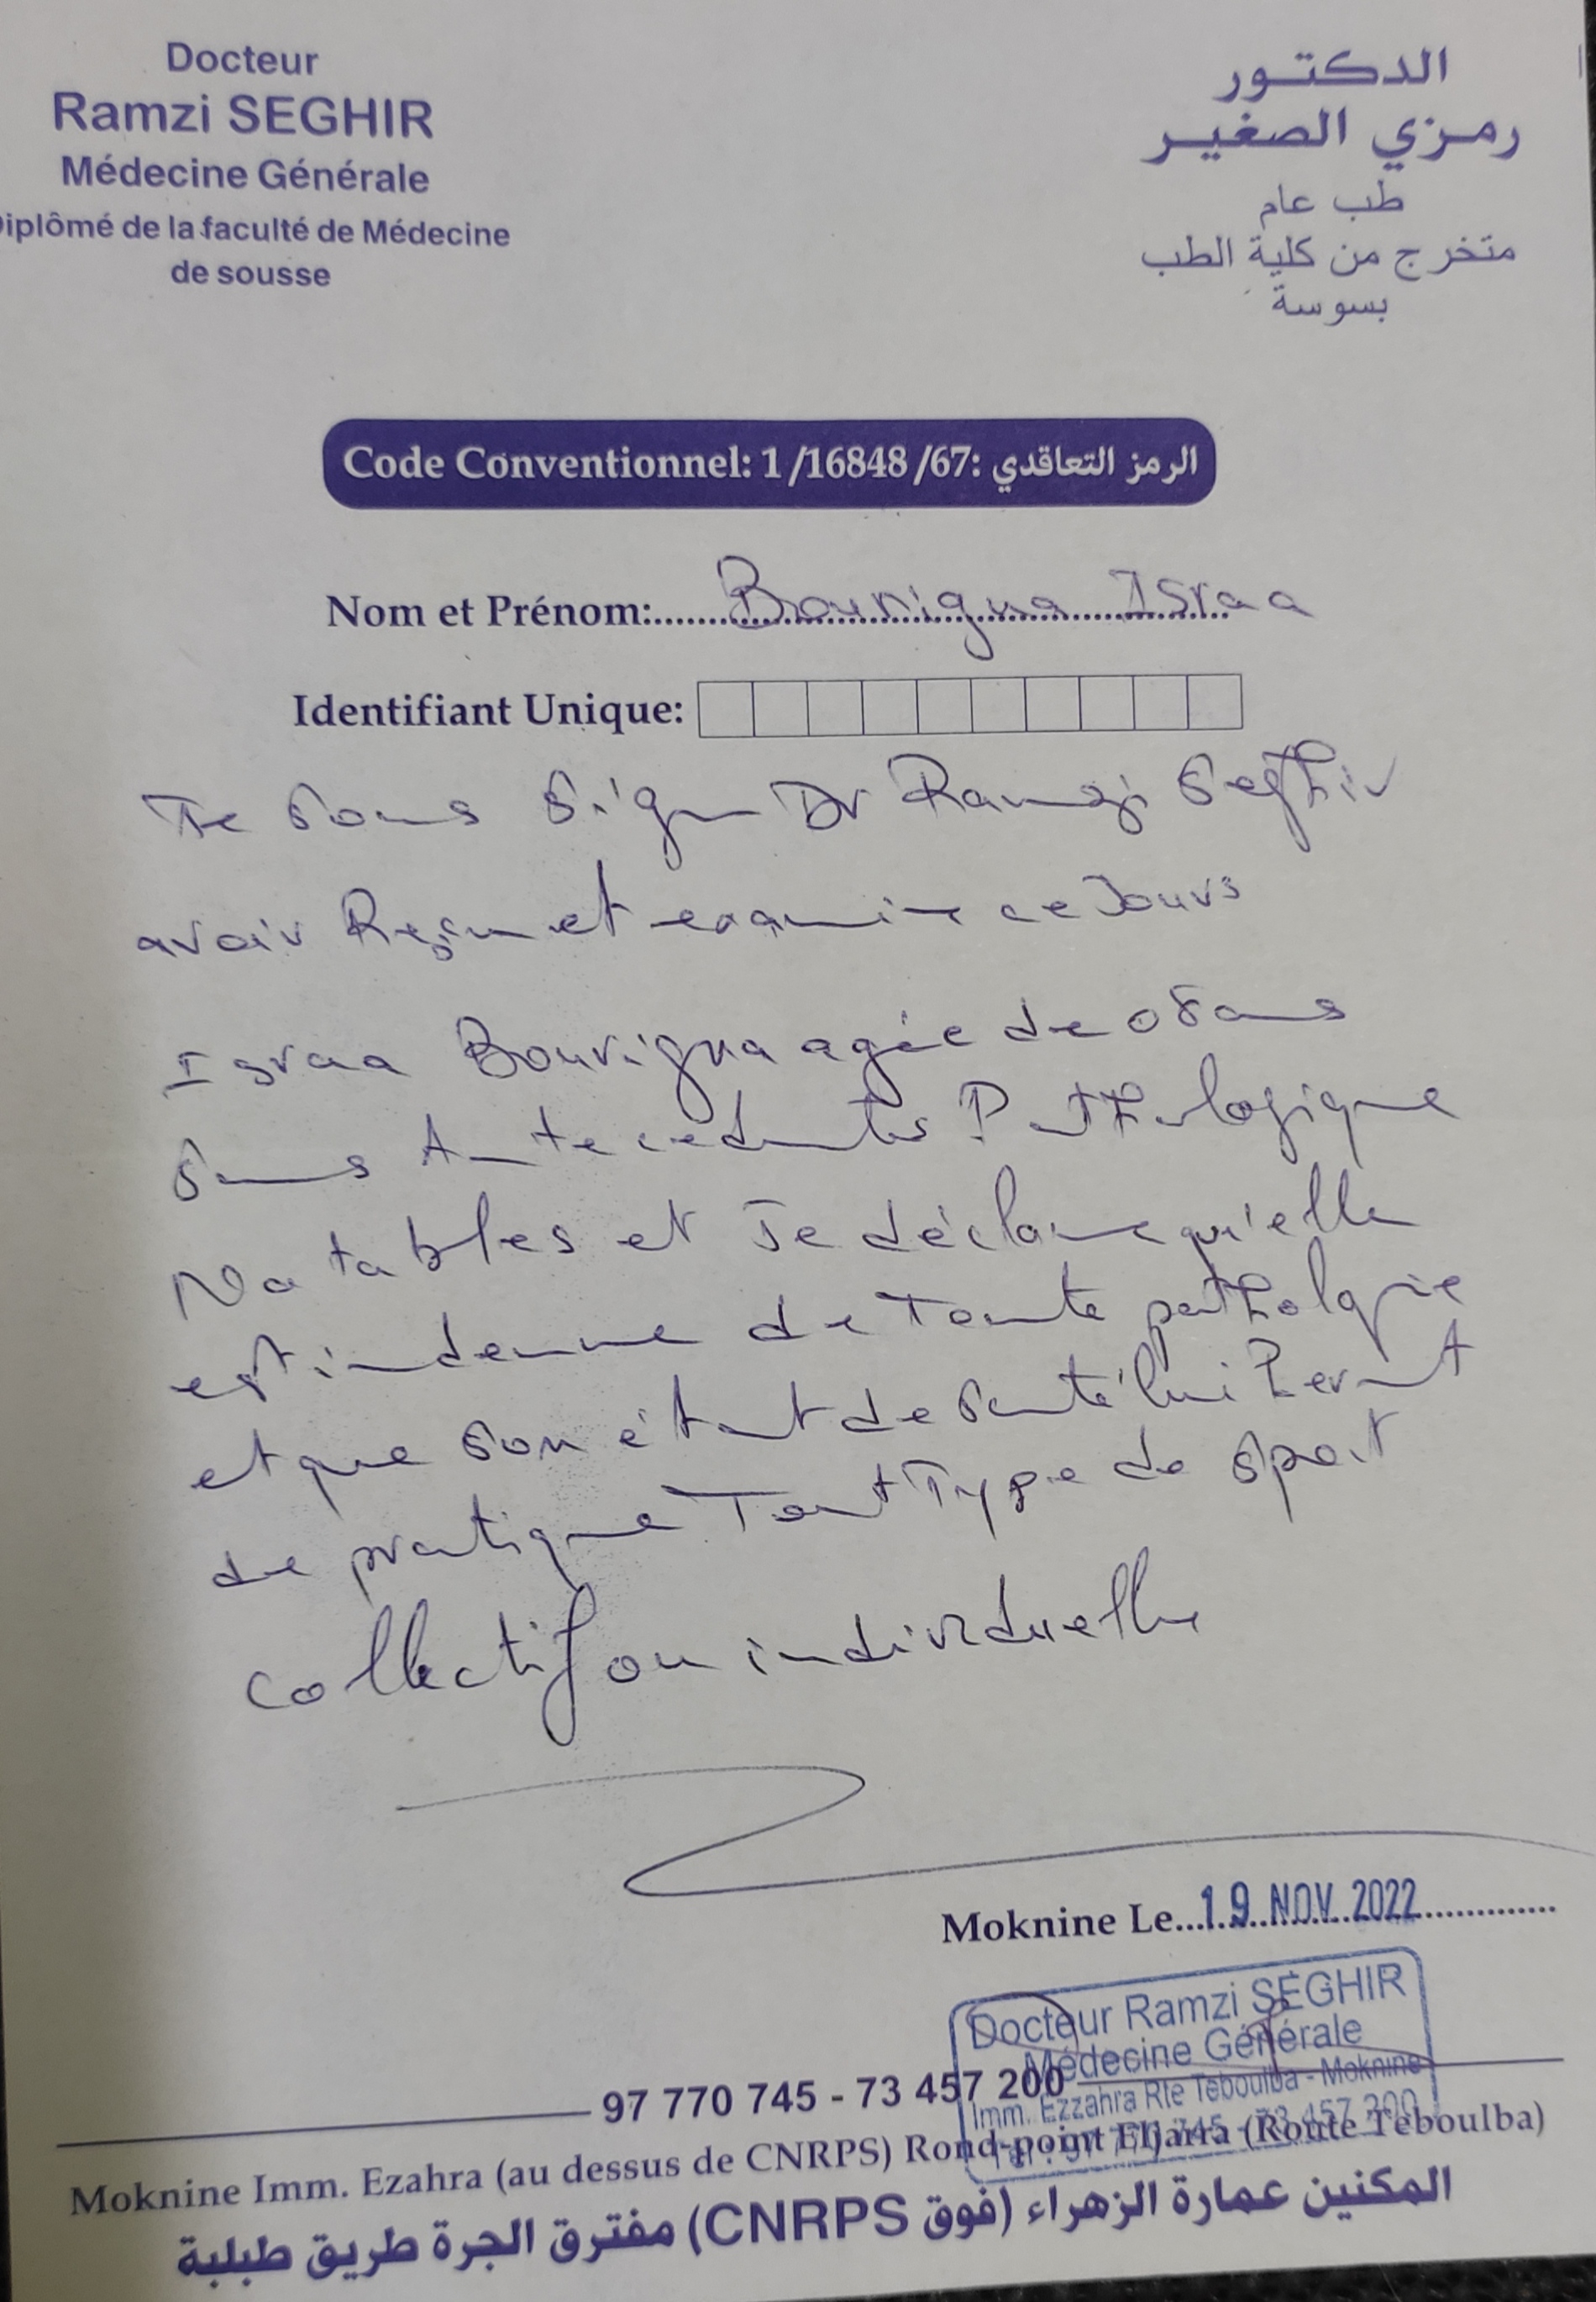 Docteur
Ramzi SEGHIR
Médecine Générale
Diplômé de la faculté de Médecine
de sousse
الدكتور
رمزي الصغير
طب عام
متخرج من كلية الطب
بسوسة
Code Conventionnel: 1/16848/67: الرمز التعاقدي
Nom et Prénom: Bourigua Israa
Identifiant Unique:
Je sous signe Dr Ramzi Seghir
avoir Reçu et examine ce Jours
Israa Bourigua agée de 08 ans
sans Antecedents Pathologique
Notables et Je déclare qu'elle
est indemne de Toute pathologie
et que son état de santé lui Permet
de pratique Tout Type de sport
collectif ou individuelle
Moknine Le 19 NOV. 2022
Docteur Ramzi SEGHIR
Médecine Générale
Imm. Ezzahra Rte Teboulba - Moknine
97 770 745 - 73 457 200
Moknine Imm. Ezahra (au dessus de CNRPS) Rond-point Eljarra (Route Teboulba)
المكنين عمارة الزهراء (فوق CNRPS) مفترق الجرة طريق طبلبة